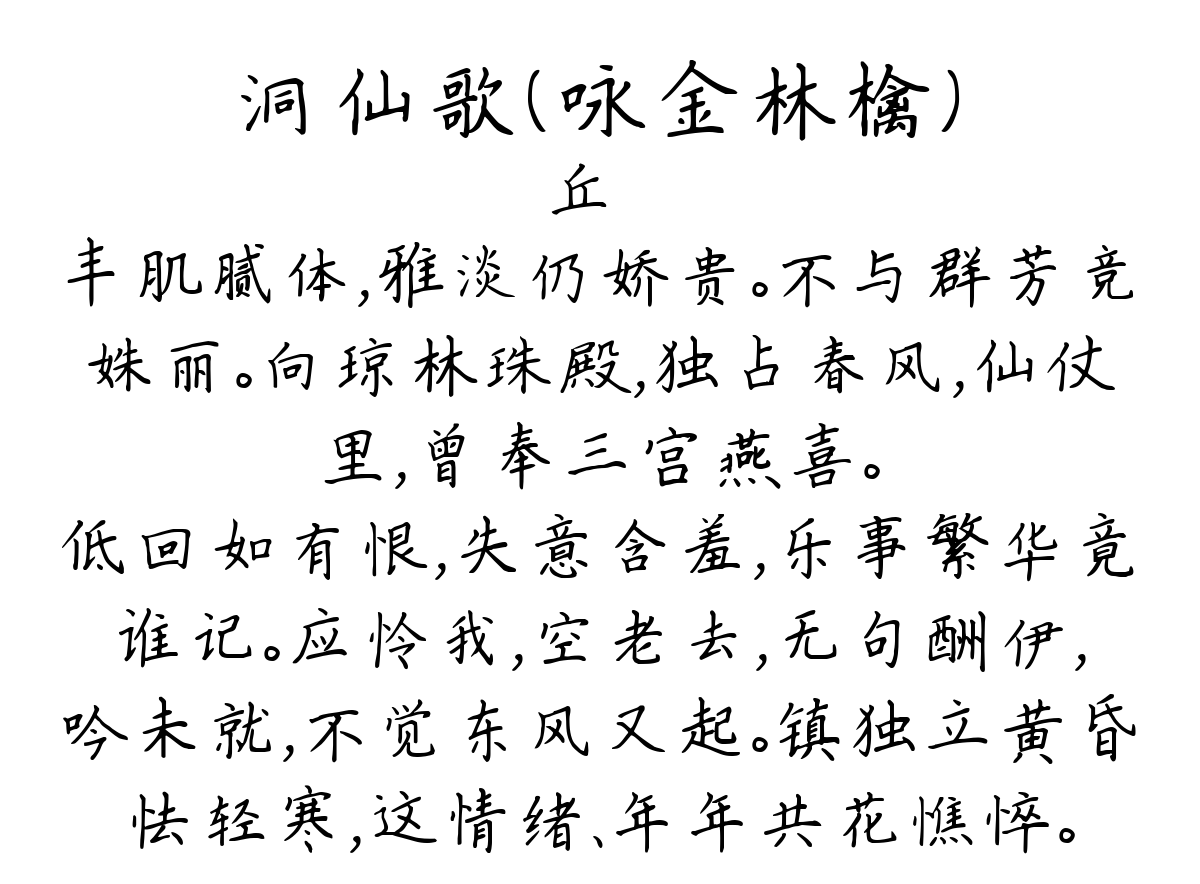 洞仙歌(咏金林檎)
丘
丰肌腻体,雅淡仍娇贵。不与群芳竞
姝丽。向琼林珠殿,独占春风,仙仗
里,曾奉三宫燕喜。
低回如有恨,失意含羞,乐事繁华竟
谁记。应怜我,空老去,无句酬伊,
吟未就,不觉东风又起。镇独立黄昏
怯轻寒,这情绪、年年共花憔悴。